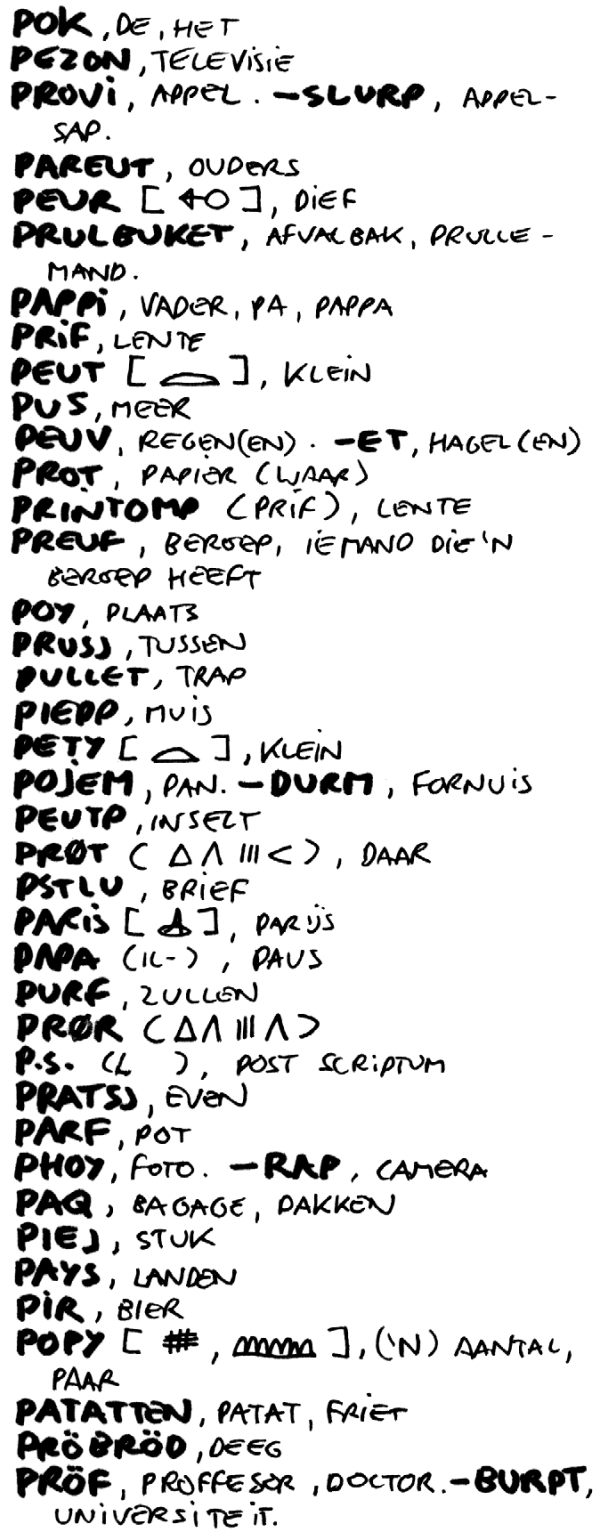 POK, DE, HET
PEZON, TELEVISIE
PROVI, APPEL. -SLURP, APPEL-
SAP.
PAREUT, OUDERS
PEUR [ ], DIEF
PRULBUKET, AFVALBAK, PRULLE-
MAND.
PAPPI, VADER, PA, PAPPA
PRIF, LENTE
PEUT [ ], KLEIN
PUS, MEER
PEUV, REGEN(EN). -ET, HAGEL(EN)
PROT, PAPIER (WAAR)
PRINTOMP (PRIF), LENTE
PREUF, BEROEP, IEMAND DIE 'N
BEROEP HEEFT
POY, PLAATS
PRUSJ, TUSSEN
PULLET, TRAP
PIEPP, MUIS
PETY [ ], KLEIN
POJEM, PAN. -DURM, FORNUIS
PEUTP, INSEKT
PRØT ( Δ Λ III < ), DAAR
PSTLU, BRIEF
PARIS [ ], PARIJS
PAPA (IL-), PAUS
PURF, ZULLEN
PRØR ( Δ Λ III Λ )
P.S. (L ), POST SCRIPTUM
PRATSJ, EVEN
PARF, POT
PHOY, FOTO. -RAP, CAMERA
PAQ, BAGAGE, PAKKEN
PIEJ, STUK
PAYS, LANDEN
PIR, BIER
POPY [ #, ], ('N) AANTAL,
PAAR
PATATTEN, PATAT, FRIET
PRÖBRÖD, DEEG
PRÖF, PROFFESOR, DOCTOR. -BURPT,
UNIVERSITEIT.